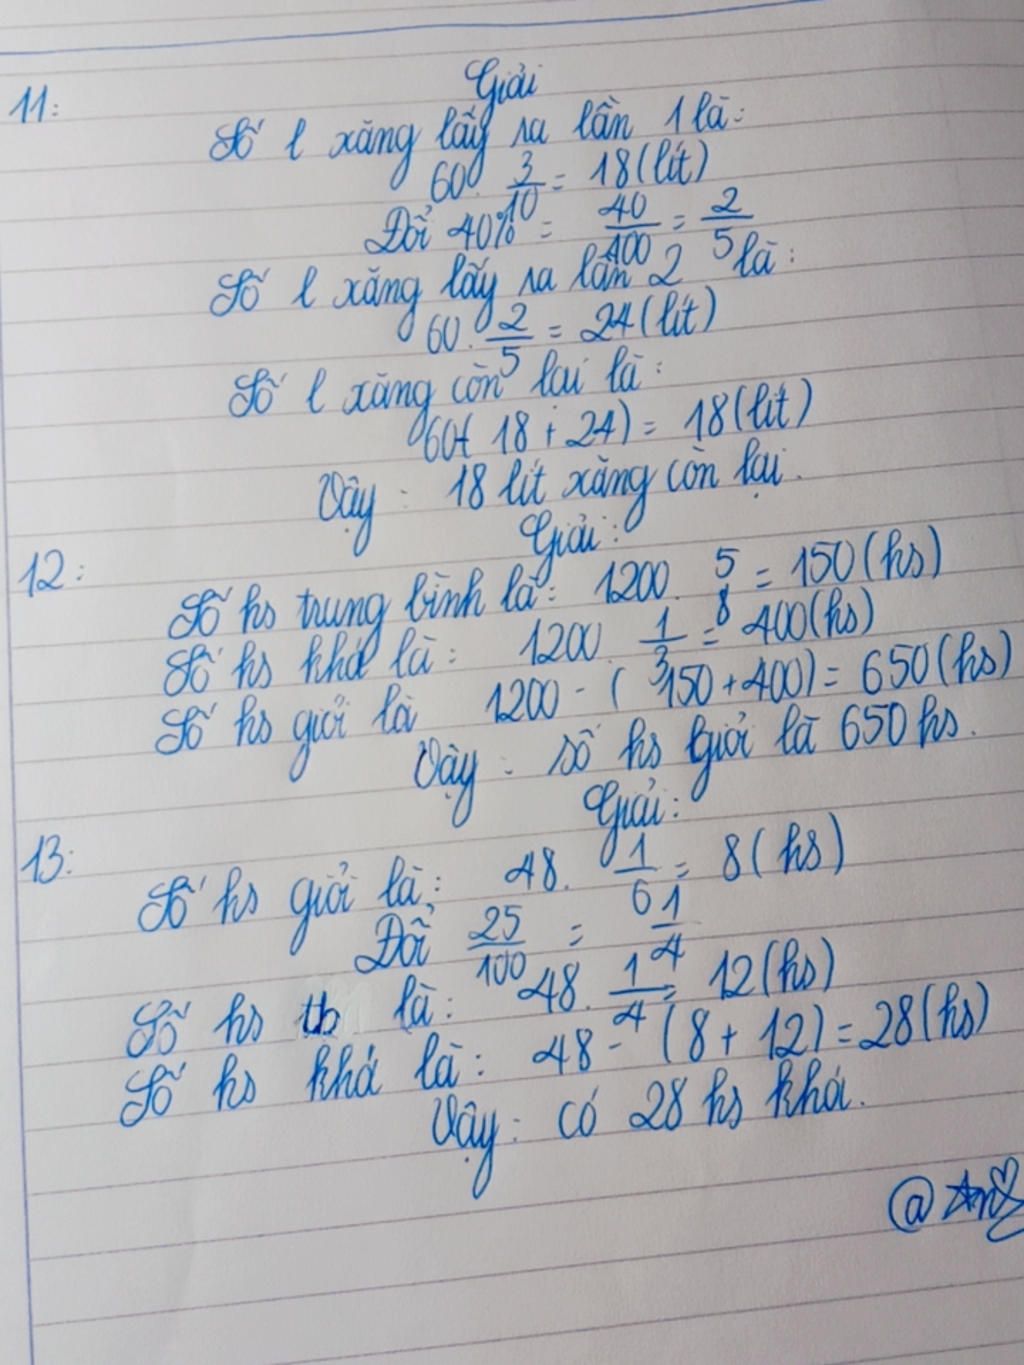 11:
Giải
Số l xăng lấy ra lần 1 là:
60. 3/10 = 18 (lít)
Đổi 40% = 40/100 = 2/5
Số l xăng lấy ra lần 2 là:
60. 2/5 = 24 (lít)
Số l xăng còn lại là:
60-( 18 + 24) = 18 (lít)
Vậy: 18 lít xăng còn lại.
12:
Giải:
Số hs trung bình là: 1200. 5/8 = 150 (hs)
Số hs khá là: 1200. 1/3 = 400 (hs)
Số hs giỏi là 1200 - ( 150 + 400) = 650 (hs)
Vậy: số hs giỏi là 650 hs.
13:
Giải:
Số hs giỏi là: 48. 1/6 = 8 (hs)
Đổi 25/100 = 1/4
Số hs tb là: 48. 1/4 = 12 (hs)
Số hs khá là: 48 - (8 + 12) = 28 (hs)
Vậy: có 28 hs khá.